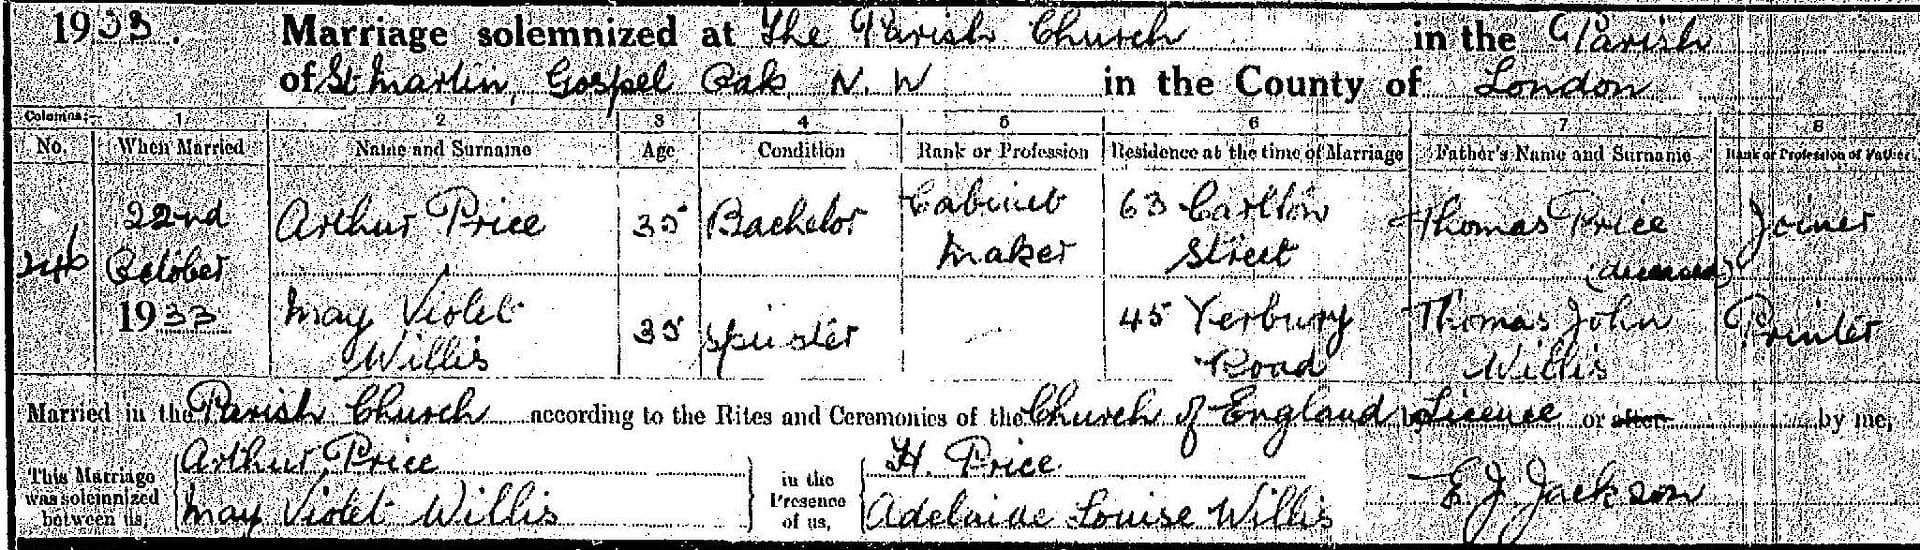 1933. Marriage solemnized at The Parish Church in the Parish
of St Martin, Gospel Oak, N.W in the County of London
Columns:- 1 2 3 4 5 6 7 8
No. When Married Name and Surname Age Condition Rank or Profession Residence at the time of Marriage Father's Name and Surname Rank or Profession of Father
246 22nd October 1933 Arthur Price 35 Bachelor Cabinet maker 63 Carlton Street Thomas Price (deceased) Joiner
May Violet Willis 35 Spinster — 45 Yerbury Road Thomas John Willis Printer
Married in the Parish Church according to the Rites and Ceremonies of the Church of England by Licence or after by me,
This Marriage was solemnized between us, Arthur Price May Violet Willis in the Presence of us, H. Price Adelaide Louise Willis E J Jackson